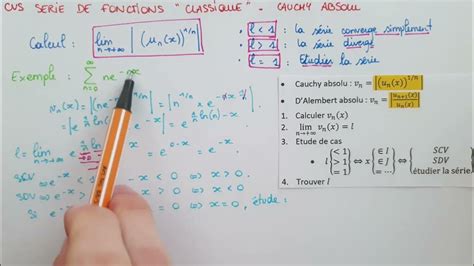 CVS SERIE DE FONCTIONS "CLASSIQUE" - CAUCHY ABSOLU
Calcul : lim n→+∞ |(u_n(x))^{1/n}|
l < 1 : la série converge simplement
l > 1 : la série diverge
l = 1 : Etudies la série
Exemple : ∑ n=0 +∞ ne^{-nx}
v_n(x) = |(ne
= | n^{1/n} × e
= | e^{1/n ln(n)} × e^{-x} | = e^{1/n ln(n)} × e^{-x}
l = lim
= e^{-x}
SCV ⇔ e^{-x} < 0 ⇔ x > 0
SDV ⇔ e^{-x} > 0 ⇔ x < 0
Si e = 0 ⇔ x = 0, étude :
• Cauchy absolu : v_n = |(u_n(x))^{1/n}|
• D'Alembert absolu : v_n = |u_{n+1}(x)/u_n(x)|
1. Calculer v_n(x)
2. lim n→+∞ v_n(x) = l
3. Etude de cas
• l { < 1 > 1 = 1 } ⇔ x { ∈ I ∈ J ∈ K } ⇔ { SCV SDV étudier la série }
4. Trouver l